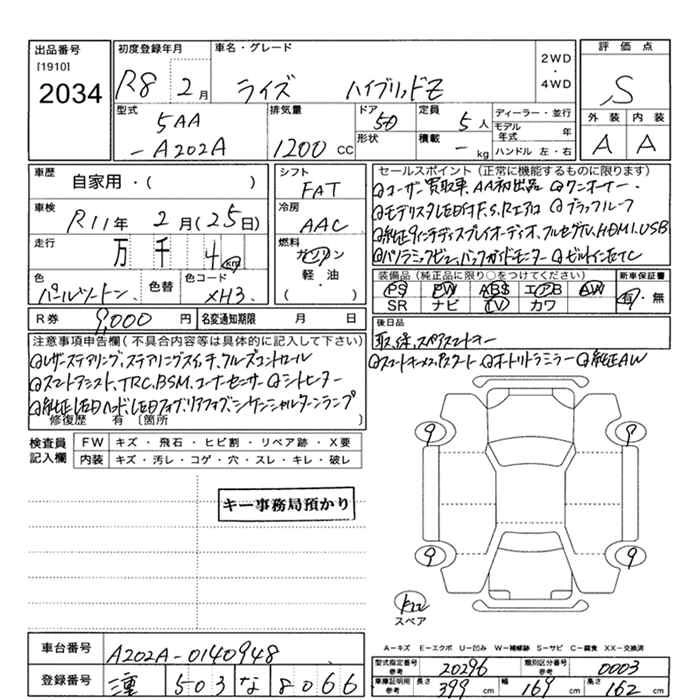 出品番号 初度登録年月 車名・グレード 2WD・4WD 評価点
[1910]
2034 R8 2月 ライズ ハイブリッドZ S
型式 排気量 ドア 定員 ディーラー・並行 外装 内装
5AA 5D 5人 モデル年式 年
-A202A 1200 CC 形状 積載 - kg ハンドル 左・右 A A
車歴 自家用・( ) シフト FAT セールスポイント(正常に機能するものに限ります)
①ユーザー買取車、AA初出品 ②ワンオーナー、
車検 R11年 2月(25日) 冷房 AAC ③モデリスタLED付F,S,Rエアロ ④ブラックルーフ
走行 万 千 4 km 燃料 ガソリン・軽・油 ( ) ⑤純正9インチディスプレイオーディオ、フルセグTV、HDMI、USB
⑥パノラミックビュー、バックガイドモニター ⑦ビルトインETC
色 パールツートン 色替 色コード XH3 装備品(純正品に限り○をつけてください) 新車保証書
PS PW ABS エアB AW 有・無
SR ナビ TV カワ
R券 9,000 円 名変通知期限 月 日 後日品
注意事項申告欄(不具合内容等は具体的に記入して下さい) 取、保、スペアスマートキー
レザーステアリング、ステアリングスイッチ、クルーズコントロール スマートキー オートリトラミラー 純正AW
スマートアシスト、TRC、BSM、コーナーセンサー シートヒーター
純正LEDヘッド、LEDフォグ、リアフォグ、シーケンシャルターンランプ
修復歴 有〔箇所 〕
検査員記入欄 FW キズ・飛石・ヒビ割・リペア跡・X要
内装 キズ・汚レ・コゲ・穴・スレ・キレ・破レ
9 9
キー事務局預かり
9 9
スペア
A-キズ E-エクボ U-凹み W-補修跡 S-サビ C-腐食 XX-交換済
車台番号 A202A-0140948 型式指定番号 参考 20296 類別区分番号 参考 0003
登録番号 三重 503 な 8066 車庫証明用 参考 長さ 399 cm 幅 169 cm 高さ 162 cm